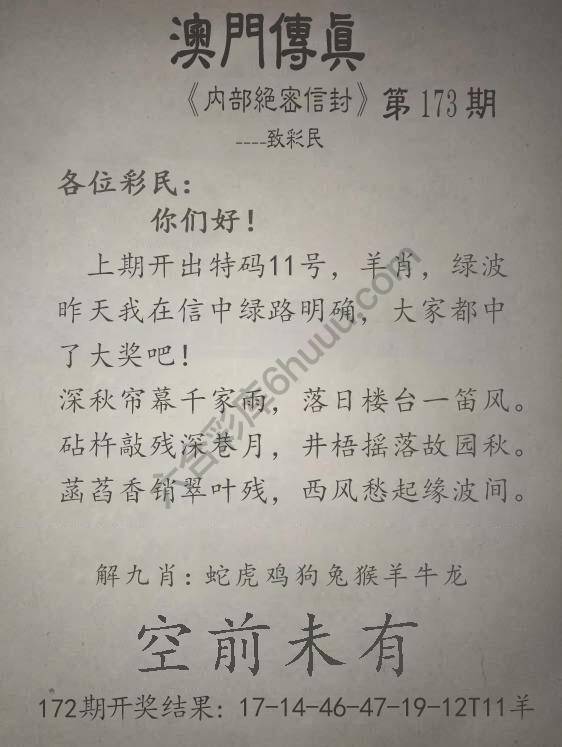 澳門傳真
《内部絕密信封》第173期
----致彩民
各位彩民：
你们好！
上期开出特码11号，羊肖，绿波
昨天我在信中绿路明确，大家都中
了大奖吧！
深秋帘幕千家雨，落日楼台一笛风。
砧杵敲残深巷月，井梧摇落故园秋。
菡萏香销翠叶残，西风愁起缘波间。
六合彩库6huuu.com
解九肖：蛇虎鸡狗兔猴羊牛龙
空前未有
172期开奖结果：17-14-46-47-19-12T11羊